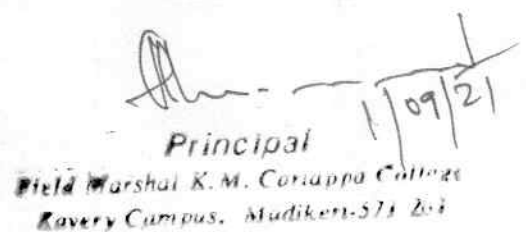 1/09/21
Principal
Field Marshal K. M. Cariappa College
Kavery Campus, Madikeri-571 201